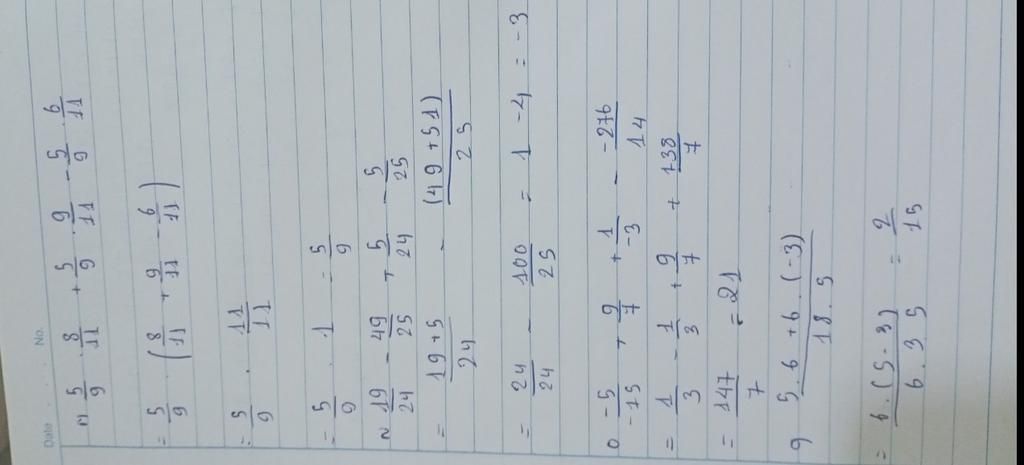 Date No.
m 5/9 . 8/11 + 5/9 . 9/11 - 5/9 . 6/11
= 5/9 . (8/11 + 9/11 - 6/11)
= 5/9 . 11/11
= 5/9 . 1 = 5/9
N 19/24 - 49/25 + 5/24 - 5/25
= 19+5/24 - (49+51)/25
= 24/24 - 100/25 = 1 - 4 = -3
O -5/-15 + 9/7 + 1/-3 - -276/14
= 1/3 - 1/3 + 9/7 + 138/7
= 147/7 = 21
9 5.6+6.(-3)/18.5
= 6.(5-3)/6.35 = 2/15